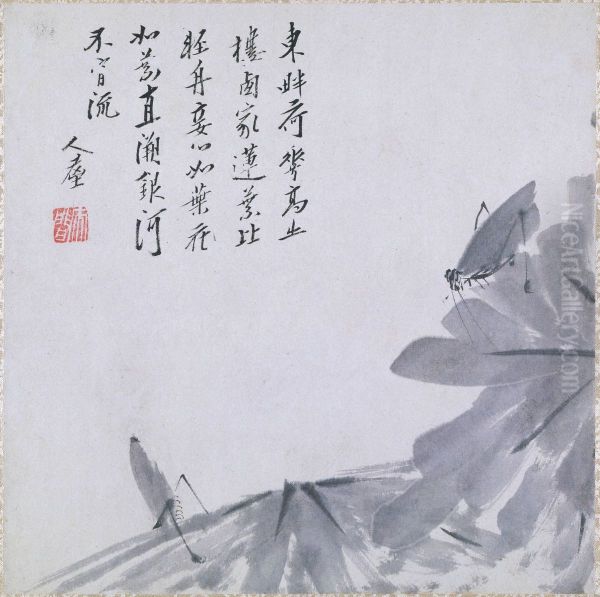 東畔荷花高出
樓西家蓮葉比
輕舟妾心如葉花
如葉直溯銀河
不肯流
人屋
NiceArtGallery.com